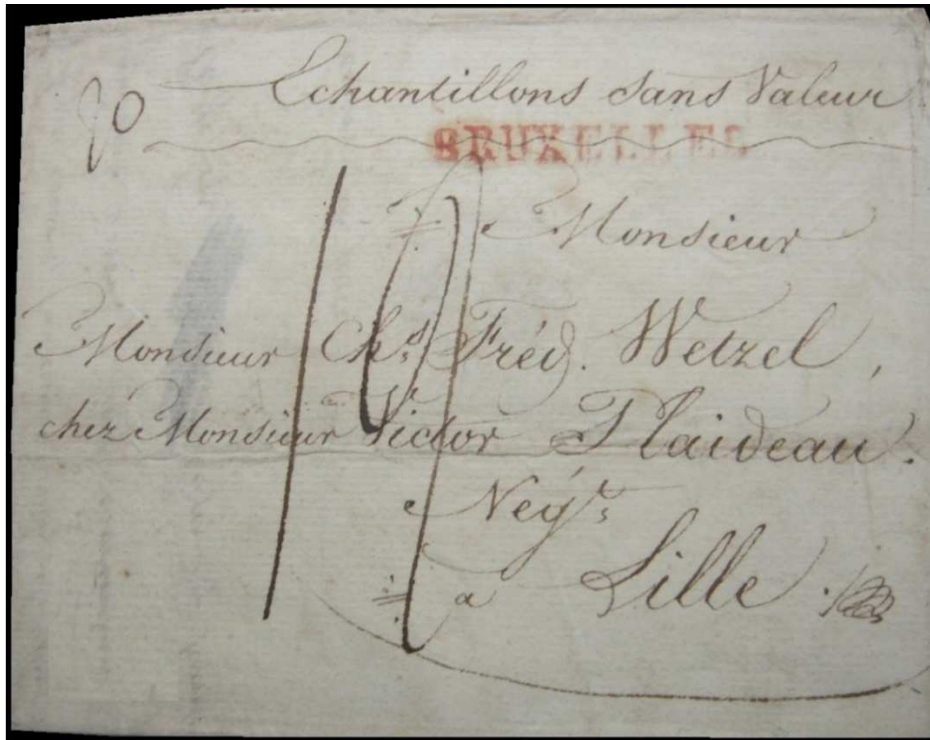 Echantillons sans Valeur
20
BRUXELLES
Monsieur
Monsieur Chs. Fréd. Wetzel,
chez Monsieur Victor Plaideau.
Negt.
19
a Lille.